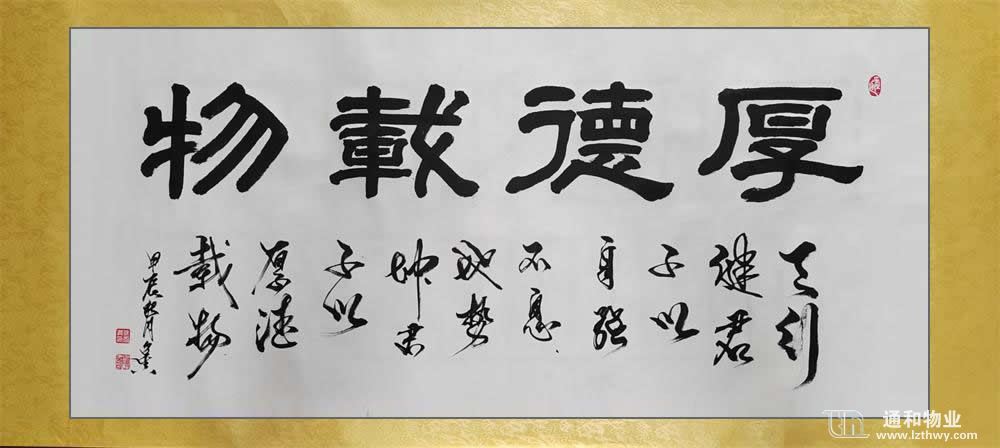 厚德載物
天行
健君
子以
自强
不息
地势
坤君
子以
厚德
載物
甲辰秋月
通和物业
www.lzthwy.com